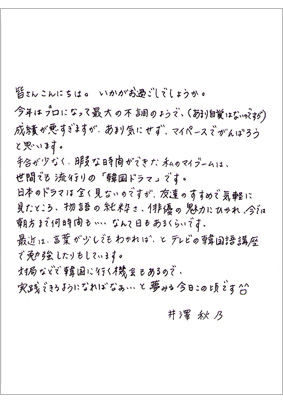 皆さんこんにちは。いかがお過ごしでしょうか。
今年はプロになって最大の不調のようで、(あまり自覚はないですが)
成績が悪すぎますが、あまり気にせず、マイペースでがんばろう
と思います。
手合が少なく、暇な時間ができた私のマイブームは、
世間でも流行りの「韓国ドラマ」です。
日本のドラマは全く見ないのですが、友達のすすめで気軽に
見たところ、物語の純粋さ、俳優の魅力にひかれ、今では
朝方まで何時間も・・・なんて日もあるくらいです。
最近は、言葉が少しでもわかれば、とテレビの韓国語講座
で勉強したりもしています。
対局などで韓国に行く機会もあるので、
実践できるようになればなあ・・・と夢みる今日この頃です
井澤秋乃